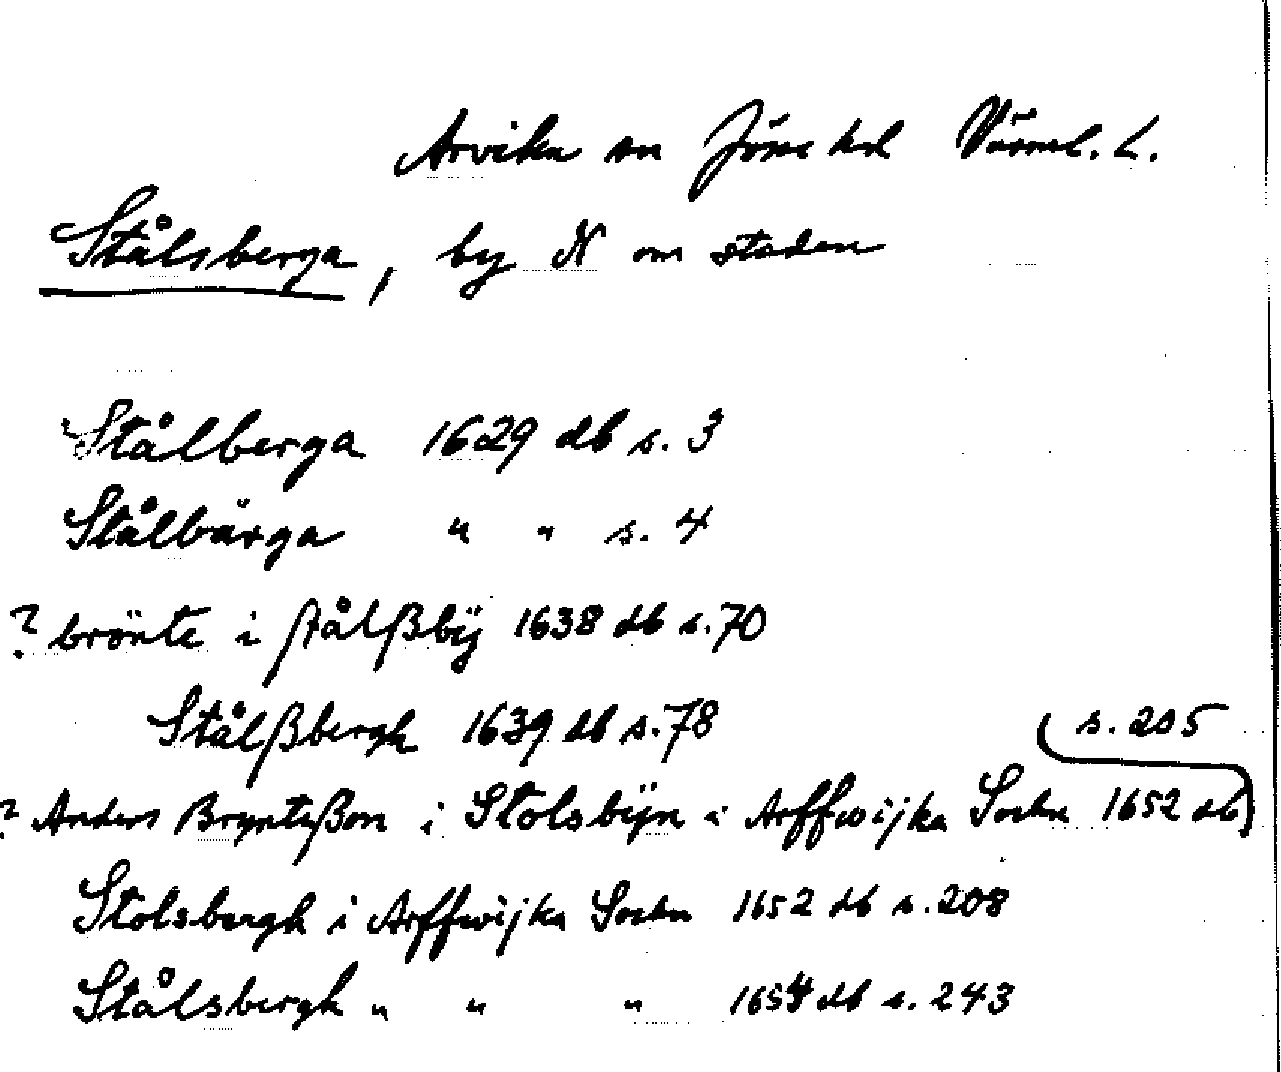 Arvika sn Jösse hd Värml. L.
Stålsberga, by N om staden
Stålberga 1629 db s. 3
Stålbärga " " s. 4
? brönte i stålßbÿ 1638 db s. 70
Stålßbergh 1639 db s. 78
s. 205
? Anders Brynteßon i Stolsbÿn i Arffwijka Sochn 1652 db
Stolsbergh i Arffwijka Sochn 1652 db s. 208
Stålsbergh " " " 1654 db s. 243